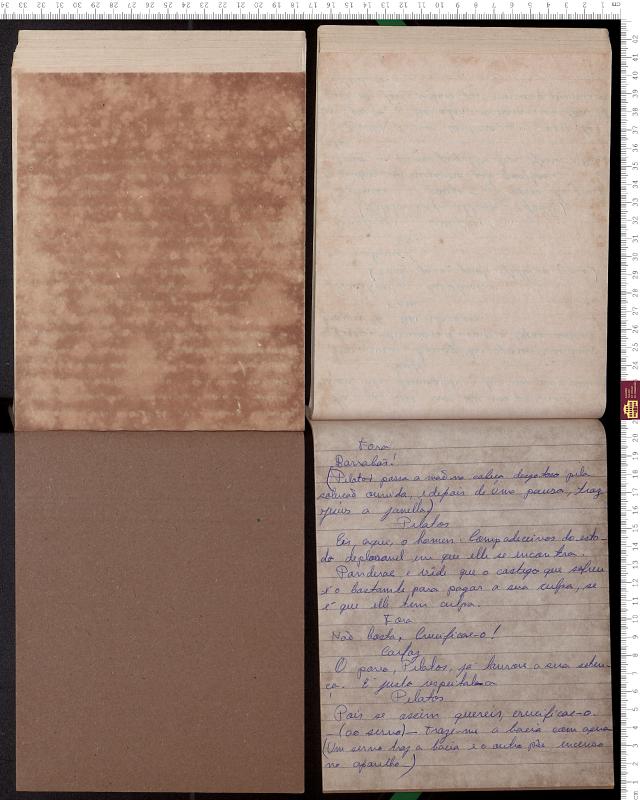 Fora
Barrabás!
(Pilatos passa a mão na cabeça desgostoso pela
solução ouvida, e depois de uma pausa, traz
Jesus a janella)
Pilatos
Eis, aqui, o homem. Compadecei-vos do esta-
do deploravel em que elle se encontra.
Ponderae e vêde que o castigo que soffreu
é o bastante para pagar a sua culpa, se
é que elle tem culpa.
Fora
Não basta, Crucificae-o!
Caifaz
O povo, Pilatos, já lavrou a sua senten-
ça. E' justo respeital-a
Pilatos
Pois se assim quereis, crucificae-o.
—(ao servo)— traze-me a bacia com agua
(Um servo traz a bacia e o outro põe incenso
no apparelho—)